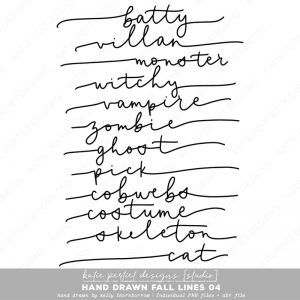 batty
villan
monster
witchy
vampire
zombie
ghost
pick
cobwebs
costume
skeleton
cat
katie pertiet designs [studio]
HAND DRAWN FALL LINES 04
hand drawn by kelly thornborrow | Individual PNG files + abr file